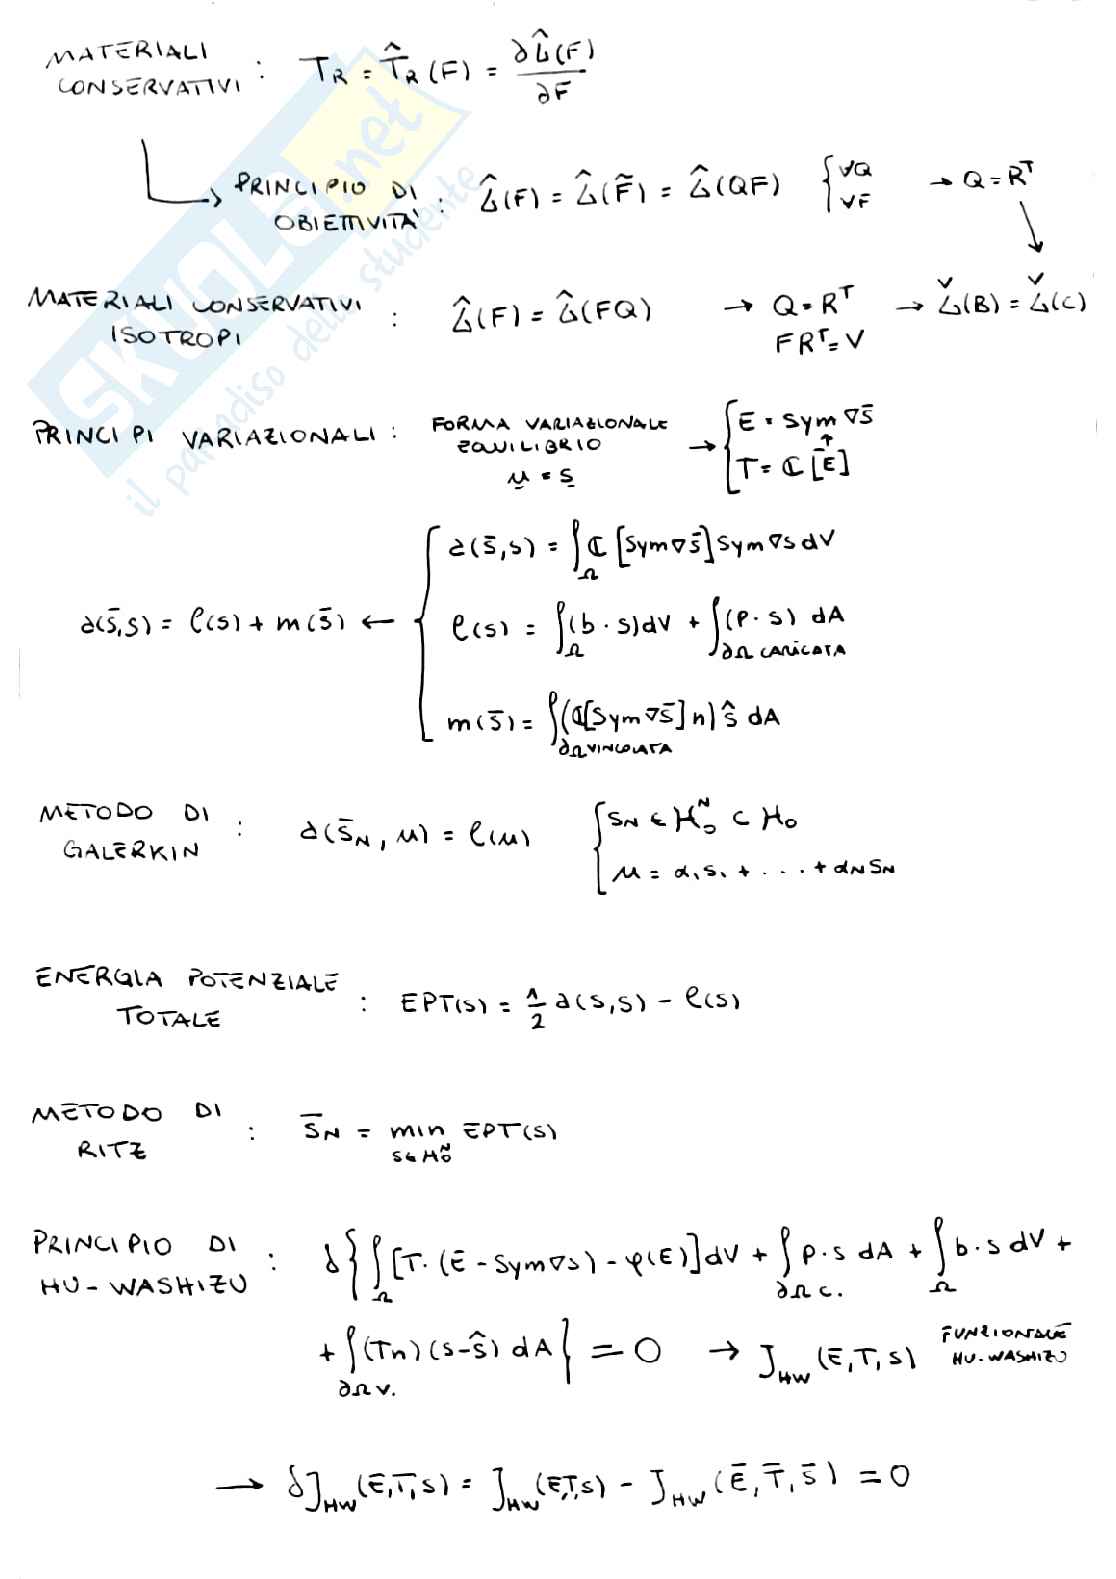 MATERIALI CONSERVATIVI : T_R = T̂_R (F) = ∂Ĝ(F) / ∂F
PRINCIPIO DI OBIETTIVITÀ : Ĝ(F) = Ĝ(F̃) = Ĝ(QF) { ∀Q ∀F → Q = R^T
MATERIALI CONSERVATIVI ISOTROPI : Ĝ(F) = Ĝ(FQ) → Q = R^T → Ǧ(B) = Ǧ(C)
FR^T = V
PRINCIPI VARIAZIONALI : FORMA VARIAZIONALE EQUILIBRIO u = s → { E = Sym ∇s̄
T = ℂ [E]
a(s̄,s) = ∫_Ω ℂ [Sym ∇s̄] Sym ∇s dV
a(s̄,s) = l(s) + m(s̄) ← { l(s) = ∫_Ω (b · s) dV + ∫_∂Ω CARICATA (p · s) dA
m(s̄) = ∫_∂Ω VINCOLATA (ℂ[Sym ∇s̄] n) ŝ dA
METODO DI GALERKIN : a(s̄_N , u) = l(u) { s_N ∈ H_0^N ⊂ H_0
u = α_1 s_1 + . . . + α_N s_N
ENERGIA POTENZIALE TOTALE : EPT(s) = 1/2 a(s,s) - l(s)
METODO DI RITZ : s̄_N = min_{s∈H_0^N} EPT(s)
PRINCIPIO DI HU-WASHIZU : δ { ∫_Ω [T · (E - Sym ∇s) - φ(E)] dV + ∫_∂Ω c. p · s dA + ∫_Ω b · s dV +
+ ∫_∂Ω v. (Tn) (s-ŝ) dA } = 0 → J_HW (E,T,s) FUNZIONALE HU-WASHIZU
→ δJ_HW (E,T,s) = J_HW (E,T,s) - J_HW (Ē,T̄,s̄) = 0
SKUOLA.net
il paradiso dello studente